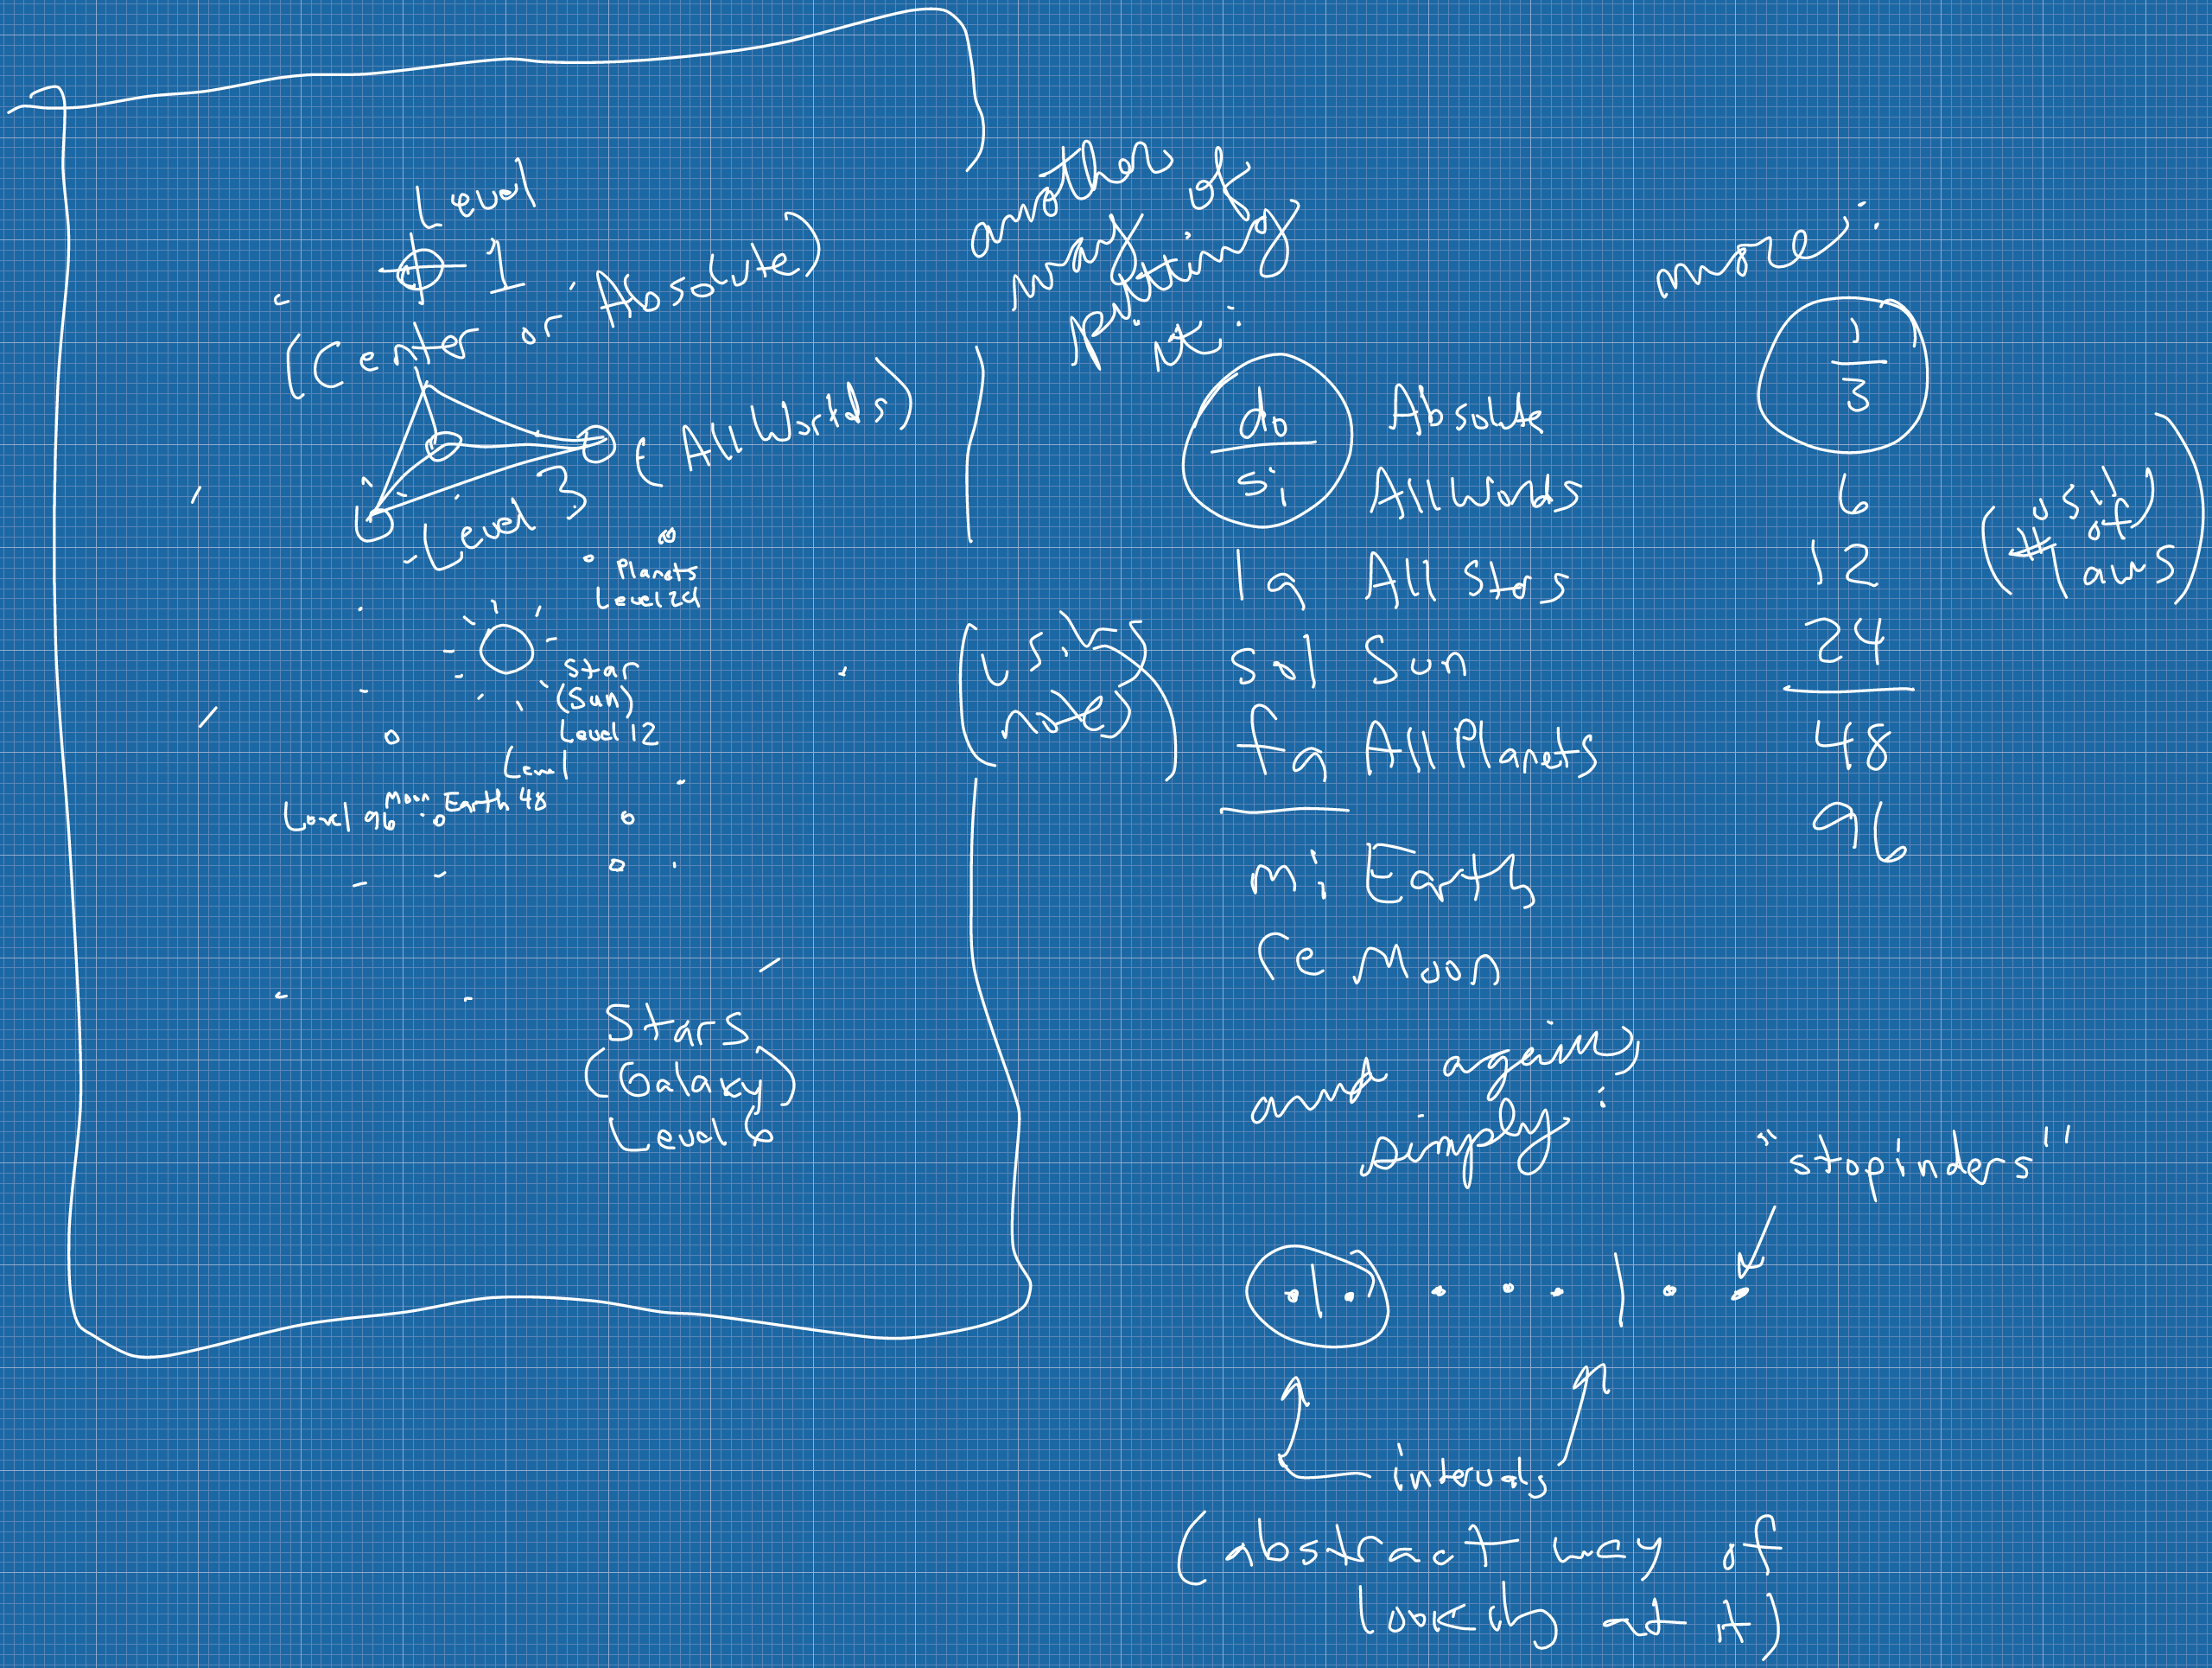 Level
1
(Center or Absolute)
(All Worlds)
Level 3
Planets
Level 24
Star
(Sun)
Level 12
Level
Moon Earth 48
Level 96
Stars
(Galaxy)
Level 6
another
way of
putting
it:
do Absolute
si All Worlds
la All Stars
sol Sun
fa All Planets
mi Earth
re Moon
(using
notes)
more:
1
3
6
12
24
48
96
(using
# of
laws)
and again,
simply:
"stopinders"
intervals
(abstract way of
looking at it)